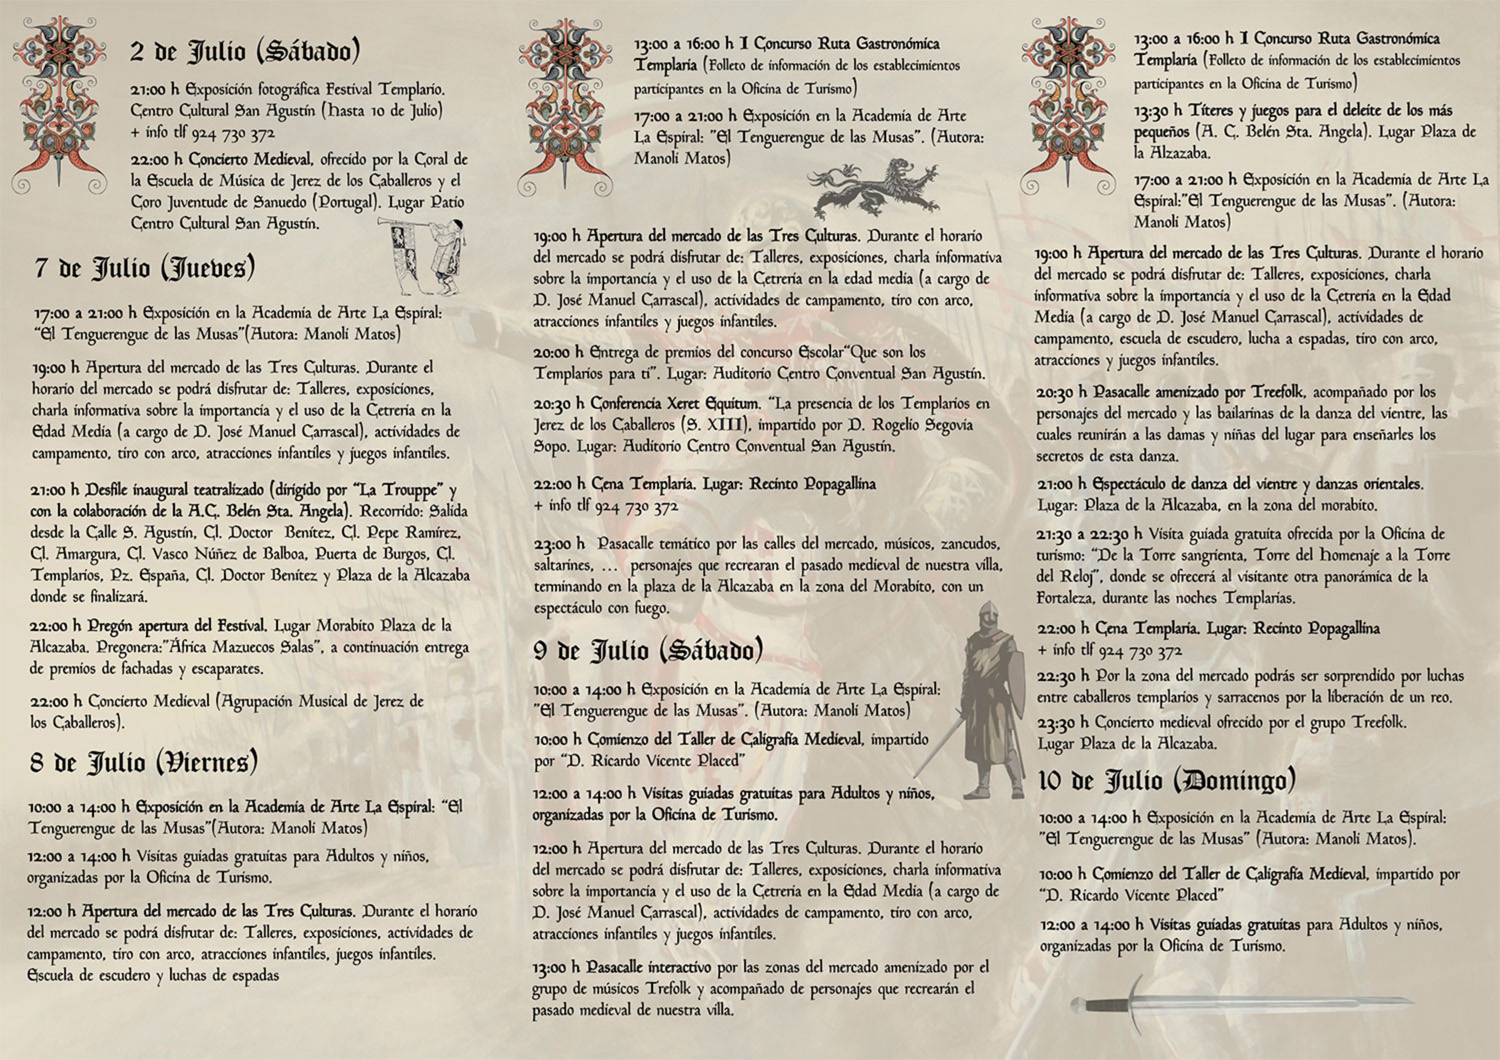 2 de Julio (Sábado)
21:00 h Exposición fotográfica Festival Templario.
Centro Cultural San Agustín (hasta 10 de Julio)
+ info tlf 924 730 372
22:00 h Concierto Medieval, ofrecido por la Coral de
la Escuela de Música de Jerez de los Caballeros y el
Coro Juventude de Sanuedo (Portugal). Lugar Patio
Centro Cultural San Agustín.
7 de Julio (Jueves)
17:00 a 21:00 h Exposición en la Academia de Arte La Espiral:
“El Tenguerengue de las Musas”(Autora: Manoli Matos)
19:00 h Apertura del mercado de las Tres Culturas. Durante el
horario del mercado se podrá disfrutar de: Talleres, exposiciones,
charla informativa sobre la importancia y el uso de la Cetrería en la
Edad Media (a cargo de D. José Manuel Carrascal), actividades de
campamento, tiro con arco, atracciones infantiles y juegos infantiles.
21:00 h Desfile inaugural teatralizado (dirigido por “La Trouppe” y
con la colaboración de la A.C. Belén Sta. Angela). Recorrido: Salida
desde la Calle S. Agustín, Cl. Doctor Benítez, Cl. Pepe Ramírez,
Cl. Amargura, Cl. Vasco Núñez de Balboa, Puerta de Burgos, Cl.
Templarios, Pz. España, Cl. Doctor Benítez y Plaza de la Alcazaba
donde se finalizará.
22:00 h Pregón apertura del Festival. Lugar Morabito Plaza de la
Alcazaba. Pregonera:"África Mazuecos Salas", a continuación entrega
de premios de fachadas y escaparates.
22:00 h Concierto Medieval (Agrupación Musical de Jerez de
los Caballeros).
8 de Julio (Viernes)
10:00 a 14:00 h Exposición en la Academia de Arte La Espiral: “El
Tenguerengue de las Musas”(Autora: Manoli Matos)
12:00 a 14:00 h Visitas guiadas gratuitas para Adultos y niños,
organizadas por la Oficina de Turismo.
12:00 h Apertura del mercado de las Tres Culturas. Durante el horario
del mercado se podrá disfrutar de: Talleres, exposiciones, actividades de
campamento, tiro con arco, atracciones infantiles, juegos infantiles.
Escuela de escudero y luchas de espadas
13:00 a 16:00 h I Concurso Ruta Gastronómica
Templaria (Folleto de información de los establecimientos
participantes en la Oficina de Turismo)
17:00 a 21:00 h Exposición en la Academia de Arte
La Espiral: "El Tenguerengue de las Musas". (Autora:
Manoli Matos)
19:00 h Apertura del mercado de las Tres Culturas. Durante el horario
del mercado se podrá disfrutar de: Talleres, exposiciones, charla informativa
sobre la importancia y el uso de la Cetrería en la edad media (a cargo de
D. José Manuel Carrascal), actividades de campamento, tiro con arco,
atracciones infantiles y juegos infantiles.
20:00 h Entrega de premios del concurso Escolar“Que son los
Templarios para ti”. Lugar: Auditorio Centro Conventual San Agustín.
20:30 h Conferencia Xeret Equitum. “La presencia de los Templarios en
Jerez de los Caballeros (S. XIII), impartido por D. Rogelio Segovia
Sopo. Lugar: Auditorio Centro Conventual San Agustín.
22:00 h Cena Templaria. Lugar: Recinto Popagallina
+ info tlf 924 730 372
23:00 h Pasacalle temático por las calles del mercado, músicos, zancudos,
saltarines, ... personajes que recrearan el pasado medieval de nuestra villa,
terminando en la plaza de la Alcazaba en la zona del Morabito, con un
espectáculo con fuego.
9 de Julio (Sábado)
10:00 a 14:00 h Exposición en la Academia de Arte La Espiral:
"El Tenguerengue de las Musas". (Autora: Manoli Matos)
10:00 h Comienzo del Taller de Caligrafía Medieval, impartido
por “D. Ricardo Vicente Placed”
12:00 a 14:00 h Visitas guiadas gratuitas para Adultos y niños,
organizadas por la Oficina de Turismo.
12:00 h Apertura del mercado de las Tres Culturas. Durante el horario
del mercado se podrá disfrutar de: Talleres, exposiciones, charla informativa
sobre la importancia y el uso de la Cetrería en la Edad Media (a cargo de
D. José Manuel Carrascal), actividades de campamento, tiro con arco,
atracciones infantiles y juegos infantiles.
13:00 h Pasacalle interactivo por las zonas del mercado amenizado por el
grupo de músicos Trefolk y acompañado de personajes que recrearán el
pasado medieval de nuestra villa.
13:00 a 16:00 h I Concurso Ruta Gastronómica
Templaria (Folleto de información de los establecimientos
participantes en la Oficina de Turismo)
13:30 h Títeres y juegos para el deleite de los más
pequeños (A. C. Belén Sta. Angela). Lugar Plaza de
la Alzazaba.
17:00 a 21:00 h Exposición en la Academia de Arte La
Espiral:"El Tenguerengue de las Musas". (Autora:
Manoli Matos)
19:00 h Apertura del mercado de las Tres Culturas. Durante el horario
del mercado se podrá disfrutar de: Talleres, exposiciones, charla
informativa sobre la importancia y el uso de la Cetrería en la Edad
Media (a cargo de D. José Manuel Carrascal), actividades de
campamento, escuela de escudero, lucha a espadas, tiro con arco,
atracciones y juegos infantiles.
20:30 h Pasacalle amenizado por Treefolk, acompañado por los
personajes del mercado y las bailarinas de la danza del vientre, las
cuales reunirán a las damas y niñas del lugar para enseñarles los
secretos de esta danza.
21:00 h Espectáculo de danza del vientre y danzas orientales.
Lugar: Plaza de la Alcazaba, en la zona del morabito.
21:30 a 22:30 h Visita guiada gratuita ofrecida por la Oficina de
turismo: “De la Torre sangrienta, Torre del homenaje a la Torre
del Reloj”, donde se ofrecerá al visitante otra panorámica de la
Fortaleza, durante las noches Templarias.
22:00 h Cena Templaria. Lugar: Recinto Popagallina
+ info tlf 924 730 372
22:30 h Por la zona del mercado podrás ser sorprendido por luchas
entre caballeros templarios y sarracenos por la liberación de un reo.
23:30 h Concierto medieval ofrecido por el grupo Treefolk.
Lugar Plaza de la Alcazaba.
10 de Julio (Domingo)
10:00 a 14:00 h Exposición en la Academia de Arte La Espiral:
"El Tenguerengue de las Musas" (Autora: Manoli Matos).
10:00 h Comienzo del Taller de Caligrafía Medieval, impartido por
“D. Ricardo Vicente Placed”
12:00 a 14:00 h Visitas guiadas gratuitas para Adultos y niños,
organizadas por la Oficina de Turismo.